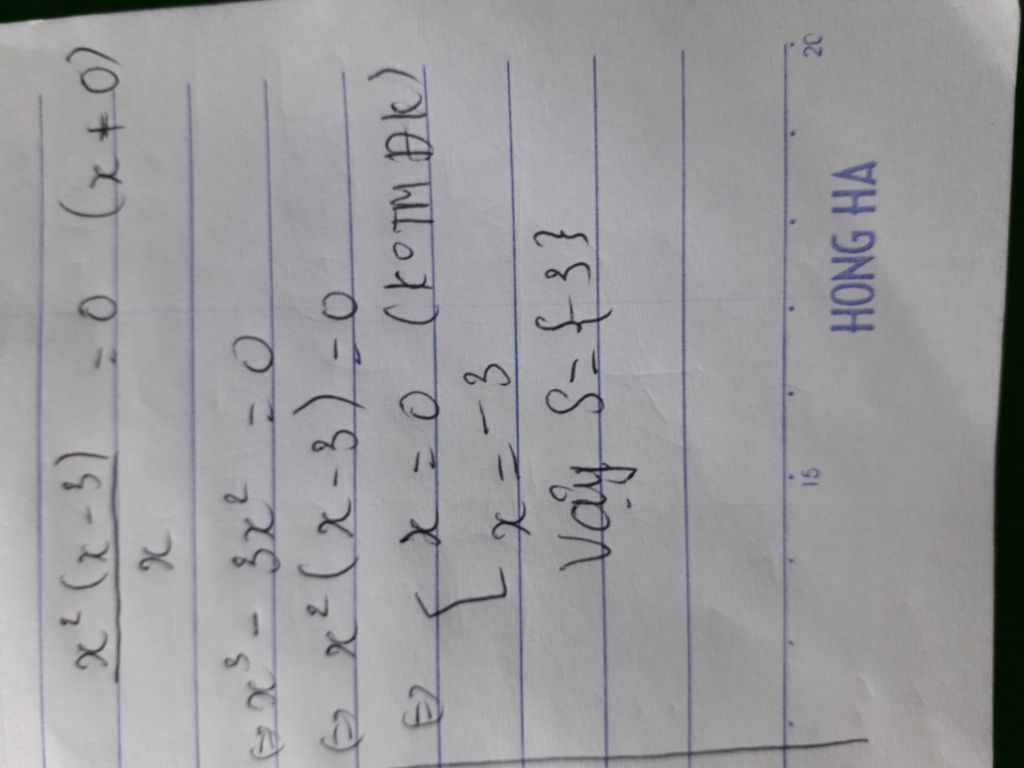 x²(x-3)/x = 0 (x ≠ 0)
⇔ x³ - 3x² = 0
⇔ x²(x-3) = 0
⇔ [x = 0 (KOTMĐK)
x = -3
Vậy S = {-3}
15 20
HONG HA